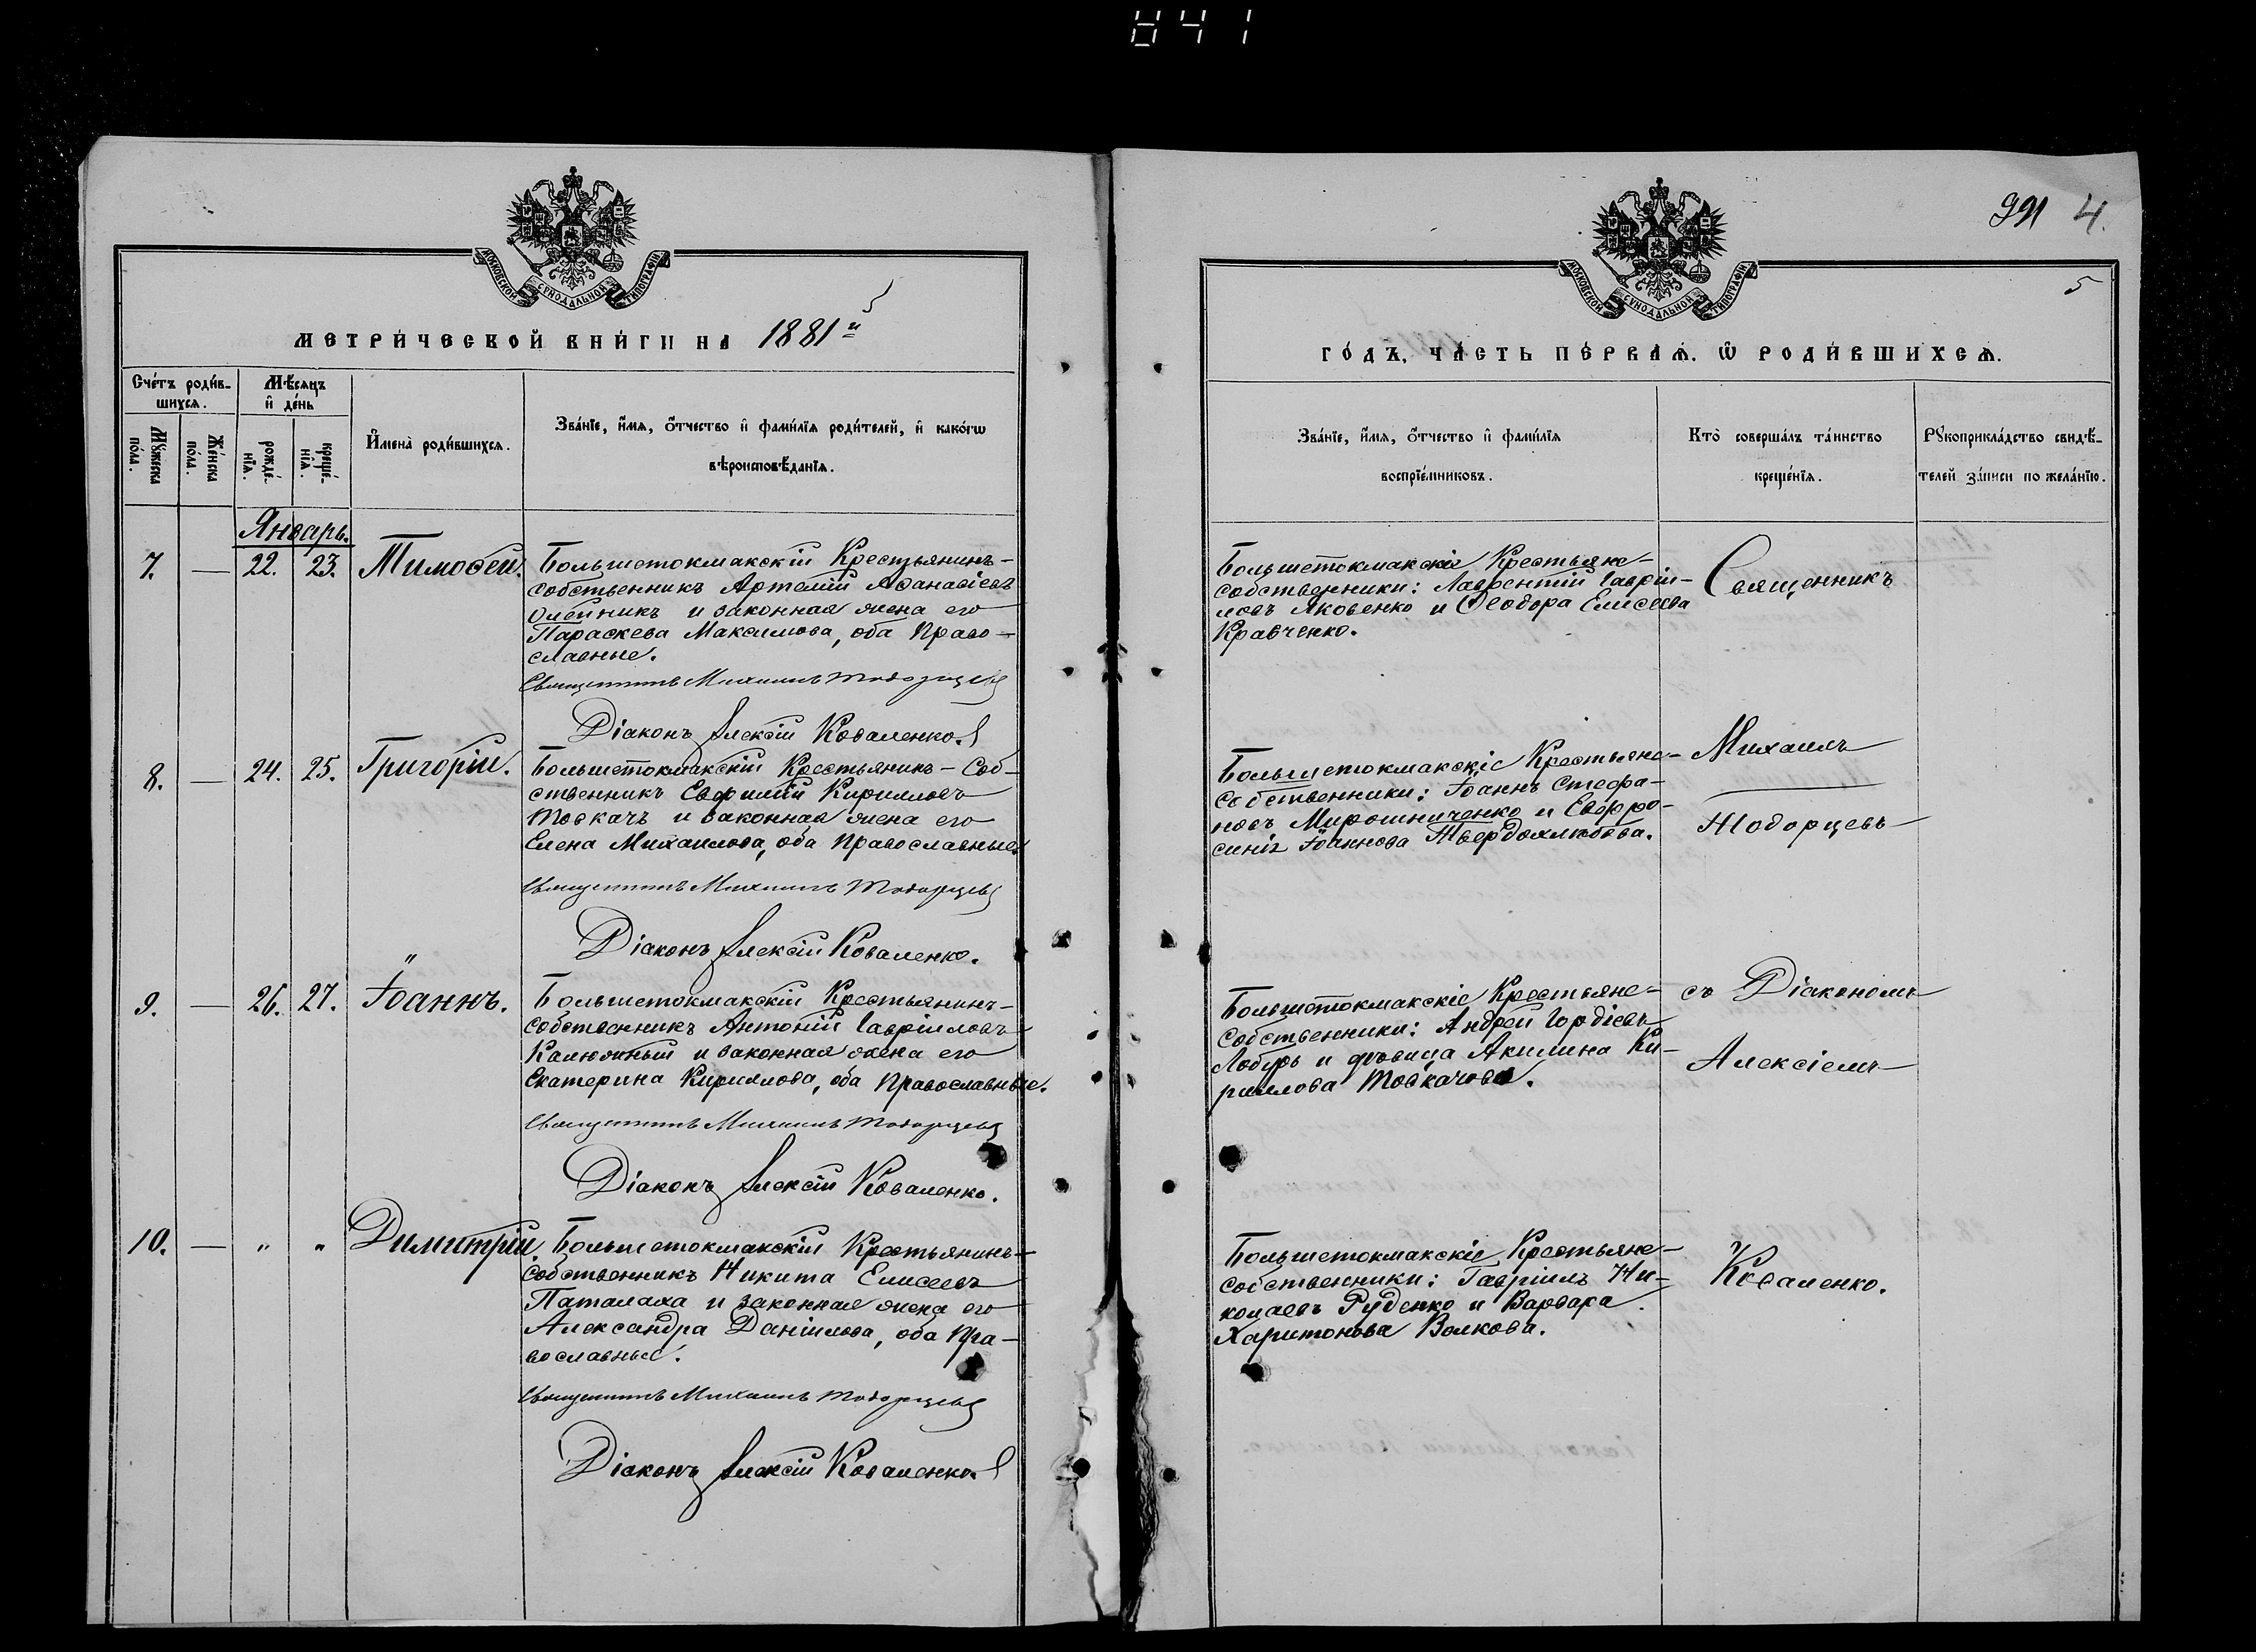 841
991 4.
5
МОСКОВСКОЙ СѴНОДАЛЬНОЙ ТИПОГРАФІИ
МЕТРИ́ЧЕСКОЙ КНИ́ГИ НА 1881й
Сче́тъ роди́в-
шихсѧ.
Мѣ́сѧцъ
и҆ де́нь
Мꙋ́жеска
по́ла.
Же́нска
по́ла.
рожде́-
нїѧ.
креще́-
нїѧ.
И҆мена̀ роди́вшихсѧ.
Зва́нїе, и҆́мѧ, ѻ҆́тчество и҆ фами́лїѧ роди́телей, и҆ како́гѡ
вѣроисповѣ́данїѧ.
Январь.
7. — 22. 23. Тимоѳей.
Большетокмакскій Крестьянинъ-
собственникъ Артемій Аѳанасіевъ
Олейникъ и законная жена его
Параскева Максимова, оба Право-
славные.
Священникъ Михаилъ Тодорцевъ
Діаконъ Алексій Коваленко.
8. — 24. 25. Григорій.
Большетокмакскій Крестьянинъ-Соб-
ственникъ Евфимій Кирилловъ
Товкачъ и законная жена его
Елена Михаилова, оба Православные.
Священникъ Михаилъ Тодорцевъ
Діаконъ Алексій Коваленко.
9. — 26. 27. Іоаннъ.
Большетокмакскій Крестьянинъ-
собственникъ Антоній Гавріиловъ
Калюжный и законная жена его
Екатерина Кириллова, оба Православные.
Священникъ Михаилъ Тодорцевъ
Діаконъ Алексій Коваленко.
10. — " " Димитрій.
Большетокмакскій Крестьянинъ-
собственникъ Никита Елисеевъ
Паталаха и законная жена его
Александра Даніилова, оба Пра-
вославные.
Священникъ Михаилъ Тодорцевъ
Діаконъ Алексій Коваленко
МОСКОВСКОЙ СѴНОДАЛЬНОЙ ТИПОГРАФІИ
ГО́ДЪ, ЧА́СТЬ ПЕ́РВАѦ, Ѡ҆ РОДИ́ВШИХСѦ.
Зва́нїе, и҆́мѧ, ѻ҆́тчество и҆ фами́лїѧ
воспрїе́мниковъ.
Кто̀ соверша́лъ та́инство
креще́нїѧ.
Рꙋкоприкла́дство свидѣ́-
телей за́писи по жела́нїю.
Большетокмакскіе Крестьяне-
собственники: Лаврентій Гавріи-
ловъ Яковенко и Ѳеодора Елисеева
Кравченко.
Большетокмакскіе Крестьяне-
собственники: Іоаннъ Стефа-
новъ Мирошниченко и Евфро-
синія Іоаннова Твердохлѣбова.
Большетокмакскіе Крестьяне-
собственники: Андрей Гордіевъ
Лобуръ и дѣвица Акилина Ки-
риллова Товкачова.
Большетокмакскіе Крестьяне-
собственники: Гавріилъ Ни-
колаевъ Руденко и Варвара
Харитонова Волкова.
Священникъ
Михаилъ
Тодорцевъ
съ Діакономъ
Алексіемъ
Коваленко.